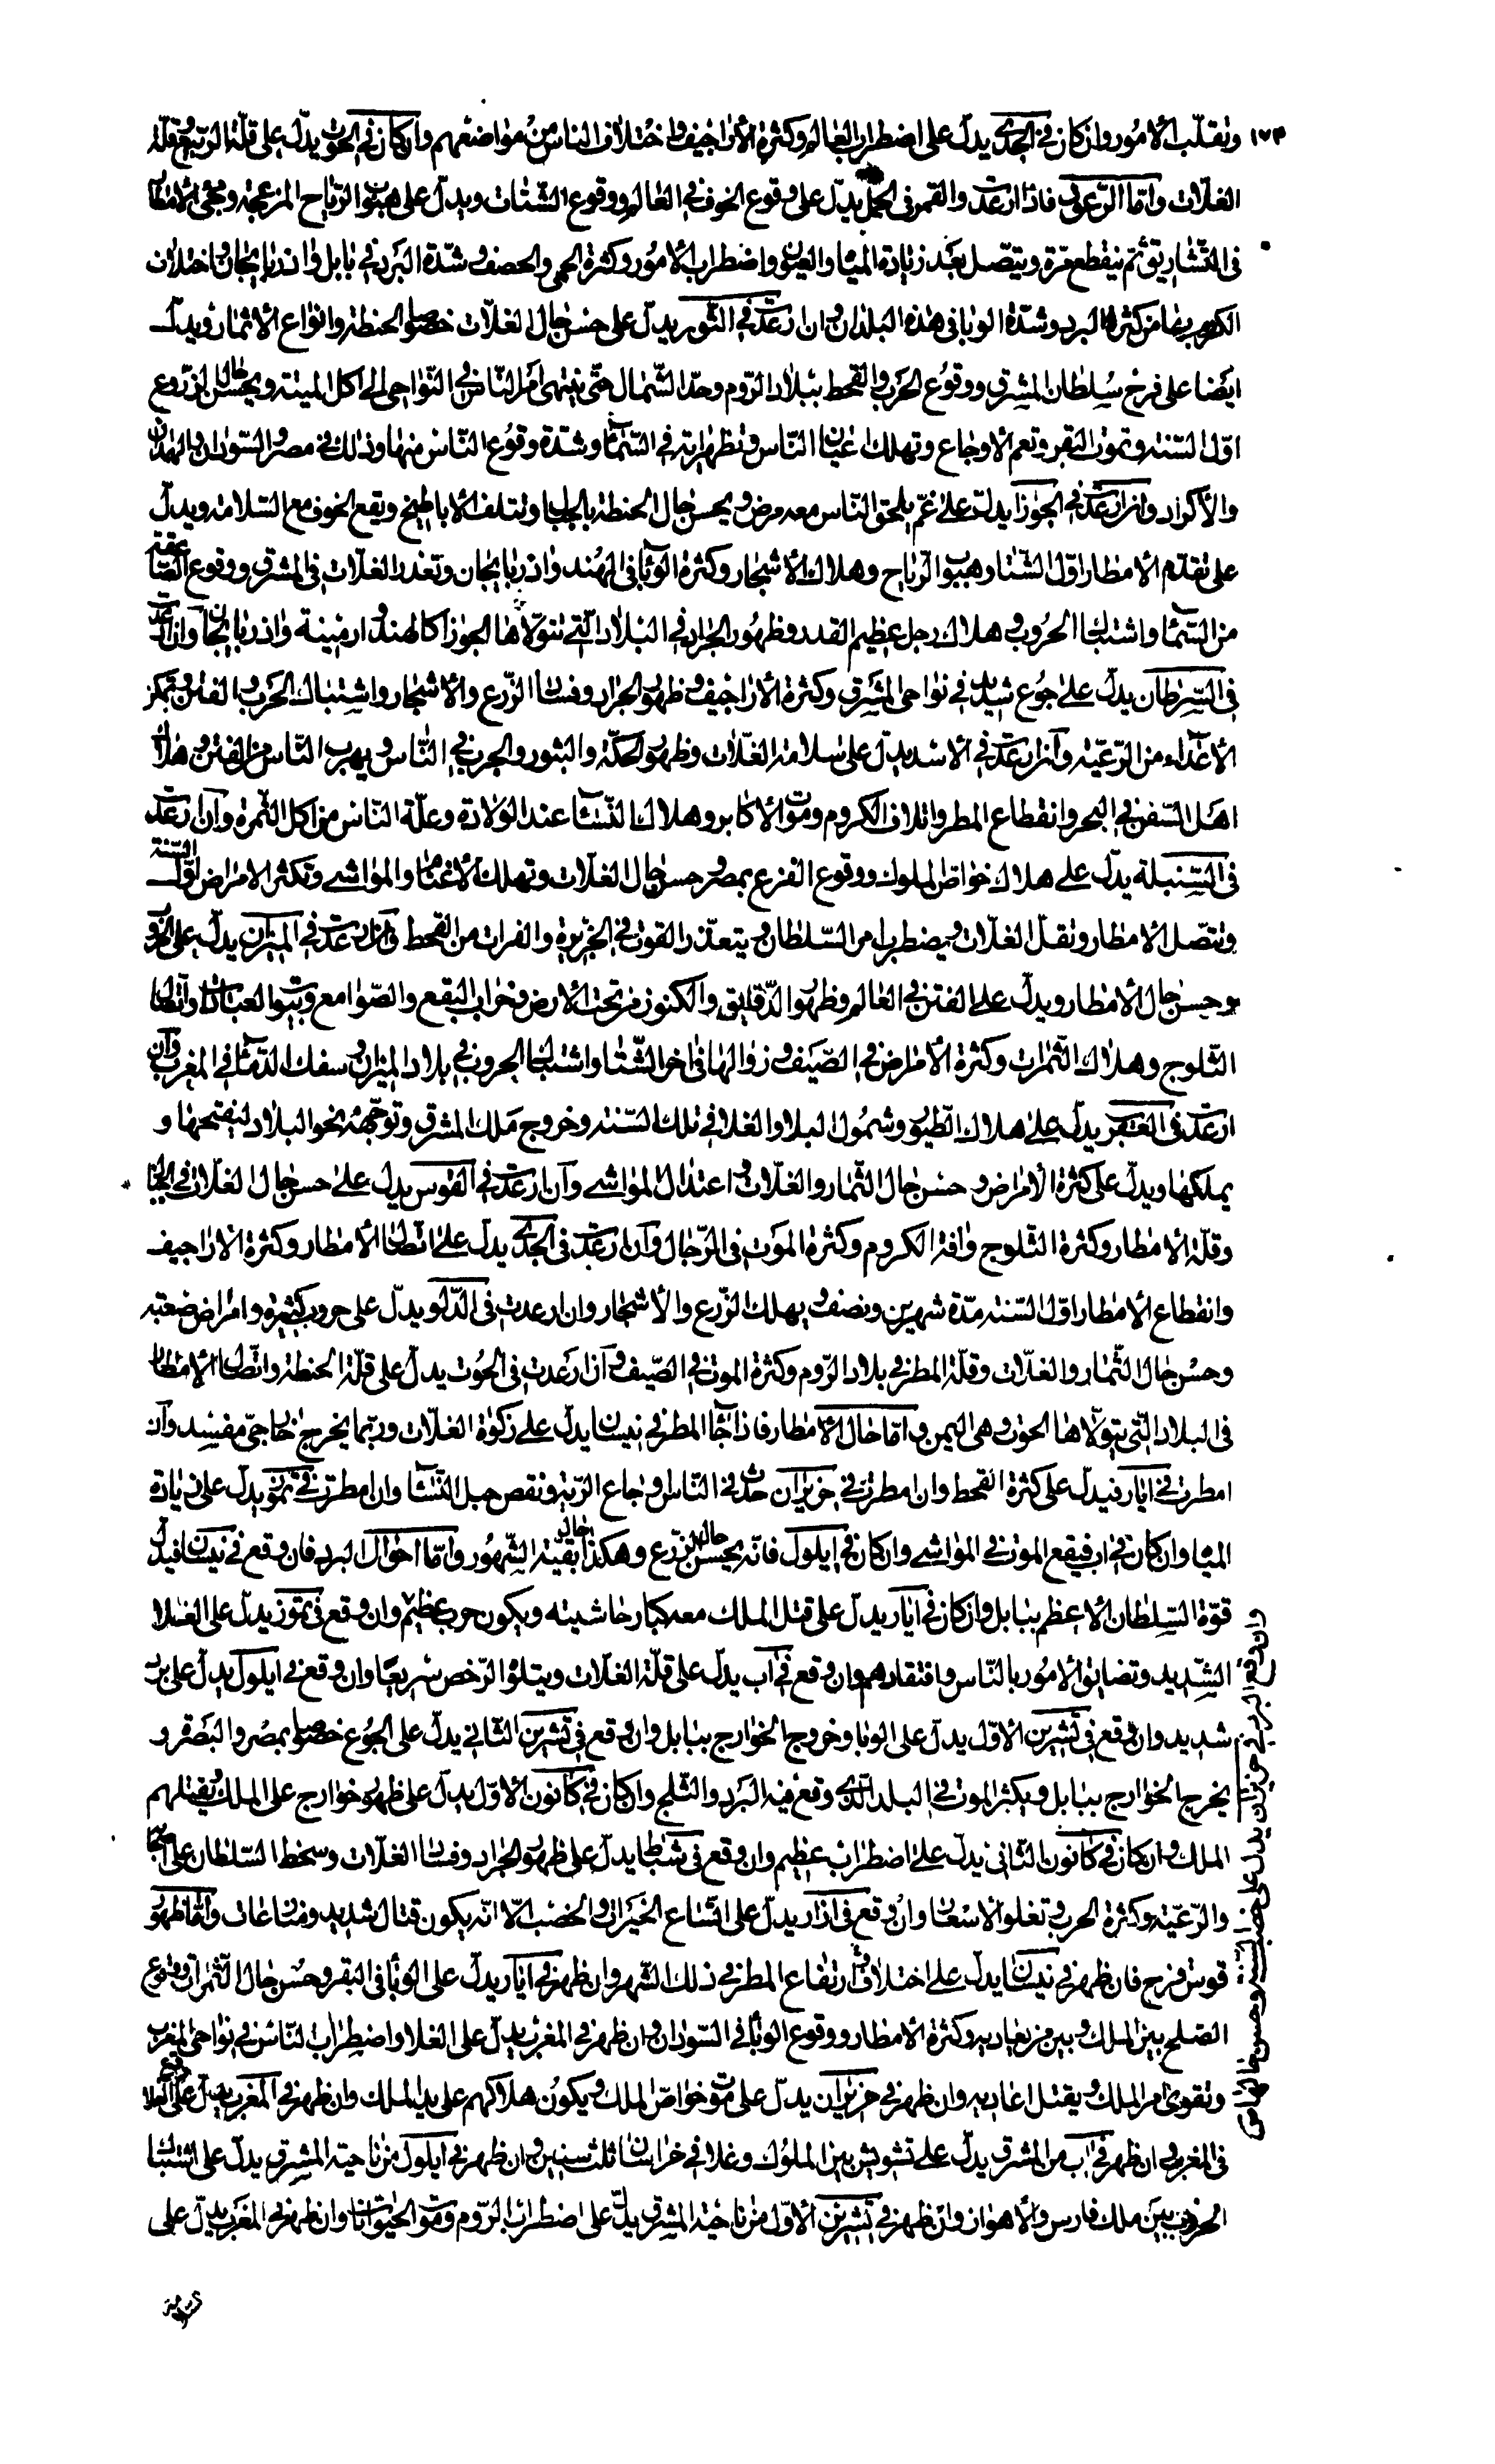 ١٧٣ وتقلّب الأمور وان كان في الجدي يدلّ على اضطراب العالم وكثرة الأراجيف واختلاف الناس من مواضعهم وان كان في الحوت يدلّ على قلّة الريح وقلّة
الغلّات وامّا الرعد فاذا ارعدت والقمر في الحمل يدلّ على وقوع الخوف في العالم ووقوع الشتات ويدلّ على هبوب الرياح المزعجة ومجئ الأمطار
في التشاريق ثم ينقطع مرّة ويتصل بعد زيادة المياه والعيون واضطراب الأمور وكثرة الحمى والحصف وشدّة البرد في بابل واذربايجان واختلاف
الكروم بها من كثرة البرد وشدّة الوبا في هذه البلدان وان ارعدت في الثور يدلّ على حسن حال الغلّات خصوصا الحنطة وانواع الأثمار ويدلّ
ايضا على فرح سلطان المشرق ووقوع الحرب والقحط ببلاد الروم وحدّ الشمال حتّى ينتهى امر النّاس في النّواحي الى اكل الميتة ويحسن حال الزرع
اوّل السّنة وتموت البقر وتعم الاوجاع وتهلك اعيان النّاس وتظهر اية في السّماء وشدّة وقوع النّاس منها وذلك في مصر والسّودان والهمدان
والأكراد وان ارعدت في الجوزا يدلّ على غمّ يلحق النّاس معه مرض ويحسن حال الحنطة بالجبال وتتلف الأباطيخ ويقع الخوف مع السّلامة ويدلّ
على تقدّم الأمطار اوّل الشّتاء وهبوب الرّياح وهلاك الأشجار وكثرة الوبآ في الهند واذربايجان وتعذر الغلّات في المشرق ووقوع الصّاعقة
من السّماء واشتباك الحروب وهلاك رجل عظيم القدر وظهور الجراد في البلاد الّتي تتولّاها الجوزا كالهند وارمينية واذربايجان وان ارعدت
في السّرطان يدلّ على جوع شديد في نواحى المشرق وكثرة الأراجيف وظهور الجراد وفساد الزّرع والأشجار واشتباك الحرب والفتن وتمكن
الأعداء من الرّعيّة وان ارعدت في الأسد يدلّ على سلامة الغلّات وظهور الحكّة والبثور والجرب في النّاس ويهرب النّاس من الفتن وهلاك
اهل السّفن في البحر وانقطاع المطر واتلاف الكروم وموت الأكابر وهلاك النّساء عند الولادة وعلّة النّاس من اكل الثّمرة وان ارعدت
في السّنبلة يدلّ على هلاك خواصّ الملوك ووقوع الفزع بمصر وحسن حال الغلّات وتهلك الأغنام والمواشي وتكثر الامراض اوّل السّنة
وتتصل الأمطار وتقل الغلّات ويضطرب امر السّلطان ويتعذّر القوت في الجزيرة والفرات من القحط وان ارعدت في الميزان يدلّ على الحروب
وحسن حال الأمطار ويدلّ على الفتن في العالم وظهور الدّقايق والكنوز من تحت الأرض وخراب البقع والصّوامع وبيوت العبادات واتّصال
الثّلوج وهلاك الثّمرات وكثرة الأمراض في الصّيف وزوالها في اخر الشّتاء واشتباك الحروب في بلاد الميزان وسفك الدّماء في المغرب وان
ارعدت في العقرب يدلّ على هلاك الطّيور وشمول البلاء والغلا في تلك السّنة وخروج ملك المشرق وتوجّهه نحو البلاد ليفتحها و
يملكها ويدلّ على كثرة الأمراض وحسن حال الثّمار والغلّات واعتدال المواشي وان ارعدت في القوس يدلّ على حسن حال الغلّات في الجبال
وقلّة الأمطار وكثرة الثّلوج وافة الكروم وكثرة الموت في الرّجال وان ارعدت في الجدي يدلّ على اتّصال الأمطار وكثرة الأراجيف
وانقطاع الأمطار اوّل السّنة مدّة شهرين ونصف ويهلك الزّرع والأشجار وان ارعدت في الدّلو يدلّ على حروب كثيرة وامراض صعبة
وحسن حال الثّمار والغلّات وقلّة المطر في بلاد الرّوم وكثرة الموت في الصّيف وان ارعدت في الحوت يدلّ على قلّة الحنطة واتّصال الأمطار
في البلاد الّتي يتولّاها الحوت وهي اليمن وامّا حال الأمطار فاذا جاء المطر في نيسان يدلّ على زكوة الغلّات وربّما يخرج خارجيّ مفسد وان
امطرت في ايار فيدلّ على كثرة القحط وان امطرت في حزيران حدث في النّاس اوجاع الرّية ونقص حبل النّساء وان امطرت في تموز يدلّ على زيادة
المياه وان كان في اب فيقع الموت في المواشي وان كان في ايلول فانّه يحسن حال الزّرع وهكذا حال بقية الشّهور وامّا احوال البرد فان وقع في نيسان فيدلّ
قوّة السّلطان الأعظم ببابل وان كان في ايّار يدلّ على قتل الملك معه كبار حاشيته ويكون حرب عظيم وان وقع في تموز يدلّ على الغلا
الشّديد وتضايق الأمور بالنّاس وافتقارهم وان وقع في آب يدلّ على قلّة الغلّات ويتلوه الرّخص سريعا وان وقع في ايلول يدلّ على برد
شديد وان وقع في تشرين الأوّل يدلّ على الوبا وخروج الخوارج ببابل وان وقع في تشرين الثّاني يدلّ على الجوع خصوصا بمصر والبصرة و
يخرج الخوارج ببابل ويكثر الموت في البلد الّذي وقع فيه البرد والثّلج وان كان في كانون الأوّل يدلّ على ظهور خوارج على الملك ويقتلهم
الملك وان كان في كانون الثّاني يدلّ على اضطراب عظيم وان وقع في شباط يدلّ على ظهور الجراد وفساد الغلّات وسخط السّلطان على
والرّعيّة وكثرة الحرب وتغلو الأسعار وان وقع في اذار يدلّ على اتّساع الخيرات والخصب الّا انّه يكون قتال شديد ومنازعات وامّا ظهور
قوس قزح فان ظهر في نيسان يدلّ على اختلاف وارتفاع المطر في ذلك الشّهر وان ظهر في ايّار يدلّ على الوبا في البقر وحسن حال الثّمرات ووقوع
الصّلح بين الملك وبين من يعاديه وكثرة الأمطار ووقوع الوبا في السّودان وان ظهر في المغرب يدلّ على الغلا واضطراب النّاس في نواحى المغرب
وتقوى امر الملك ويقتل اعاديه وان ظهر في حزيران يدلّ على موت خواصّ الملك ويكون هلاكهم على يد الملك وان ظهر في المغرب يدلّ على وقوع الغلا
في المغرب وان ظهر في اب من المشرق يدلّ على تشويش بين الملوك وغلا في خراسان ثلث سنين وان ظهر في ايلول من ناحية المشرق يدلّ على اشتباك
الحرب بين ملك فارس والأهواز وان ظهر في تشرين الأوّل من ناحية المشرق يدلّ على اضطراب الرّوم وموت الحيوانات وان ظهر في المغرب يدلّ على
وان وقع البرد في حزيران يدل على خصب السنة وحسن حال